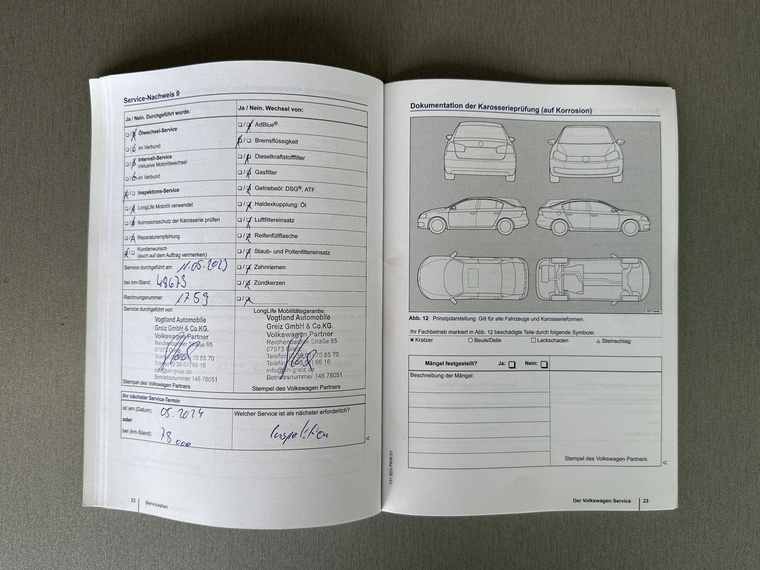 Service-Nachweis 9
Ja / Nein. Durchgeführt wurde:
Ölwechsel-Service
im Verbund
Intervall-Service
inklusive Motorölwechsel
im Verbund
Inspektions-Service
LongLife Motoröl verwendet
Korrosionsschutz der Karosserie prüfen
Reparaturempfehlung
Kundenwunsch
(auch auf dem Auftrag vermerken)
Service durchgeführt am: 11.05.2023
bei km-Stand: 48673
Rechnungsnummer: 1759
Service durchgeführt von:
Vogtland Automobile
Greiz GmbH & Co.KG.
Volkswagen Partner
Reichenbacher Straße 65
07973
70 65 70
Betriebsnummer 146 78051
Stempel des Volkswagen Partners
Ja / Nein. Wechsel von:
AdBlue®
Bremsflüssigkeit
Dieselkraftstofffilter
Gasfilter
Getriebeöl: DSG®, ATF
Haldexkupplung: Öl
Luftfiltereinsatz
Reifenfüllflasche
Staub- und Pollenfiltereinsatz
Zahnriemen
Zündkerzen
LongLife Mobilitätsgarantie:
Vogtland Automobile
Greiz GmbH & Co.KG.
Volkswagen Partner
Reichenbacher Straße 65
07973
Telefon 70 65 70
Telefax 66 16
Betriebsnummer 146 78051
Stempel des Volkswagen Partners
Ihr nächster Service-Termin
ist am (Datum) 05.2024
oder
bei (km-Stand): 78000
Welcher Service ist als nächster erforderlich?
Inspektion
22 Serviceplan
131.5D3.PKW.01
Dokumentation der Karosserieprüfung (auf Korrosion)
Abb. 12 Prinzipdarstellung. Gilt für alle Fahrzeuge und Karosserieformen.
Ihr Fachbetrieb markiert in Abb. 12 beschädigte Teile durch folgende Symbole:
Kratzer Beule/Delle Lackschaden Steinschlag
Mängel festgestellt? Ja: Nein:
Beschreibung der Mängel:
Stempel des Volkswagen Partners
Der Volkswagen Service 23